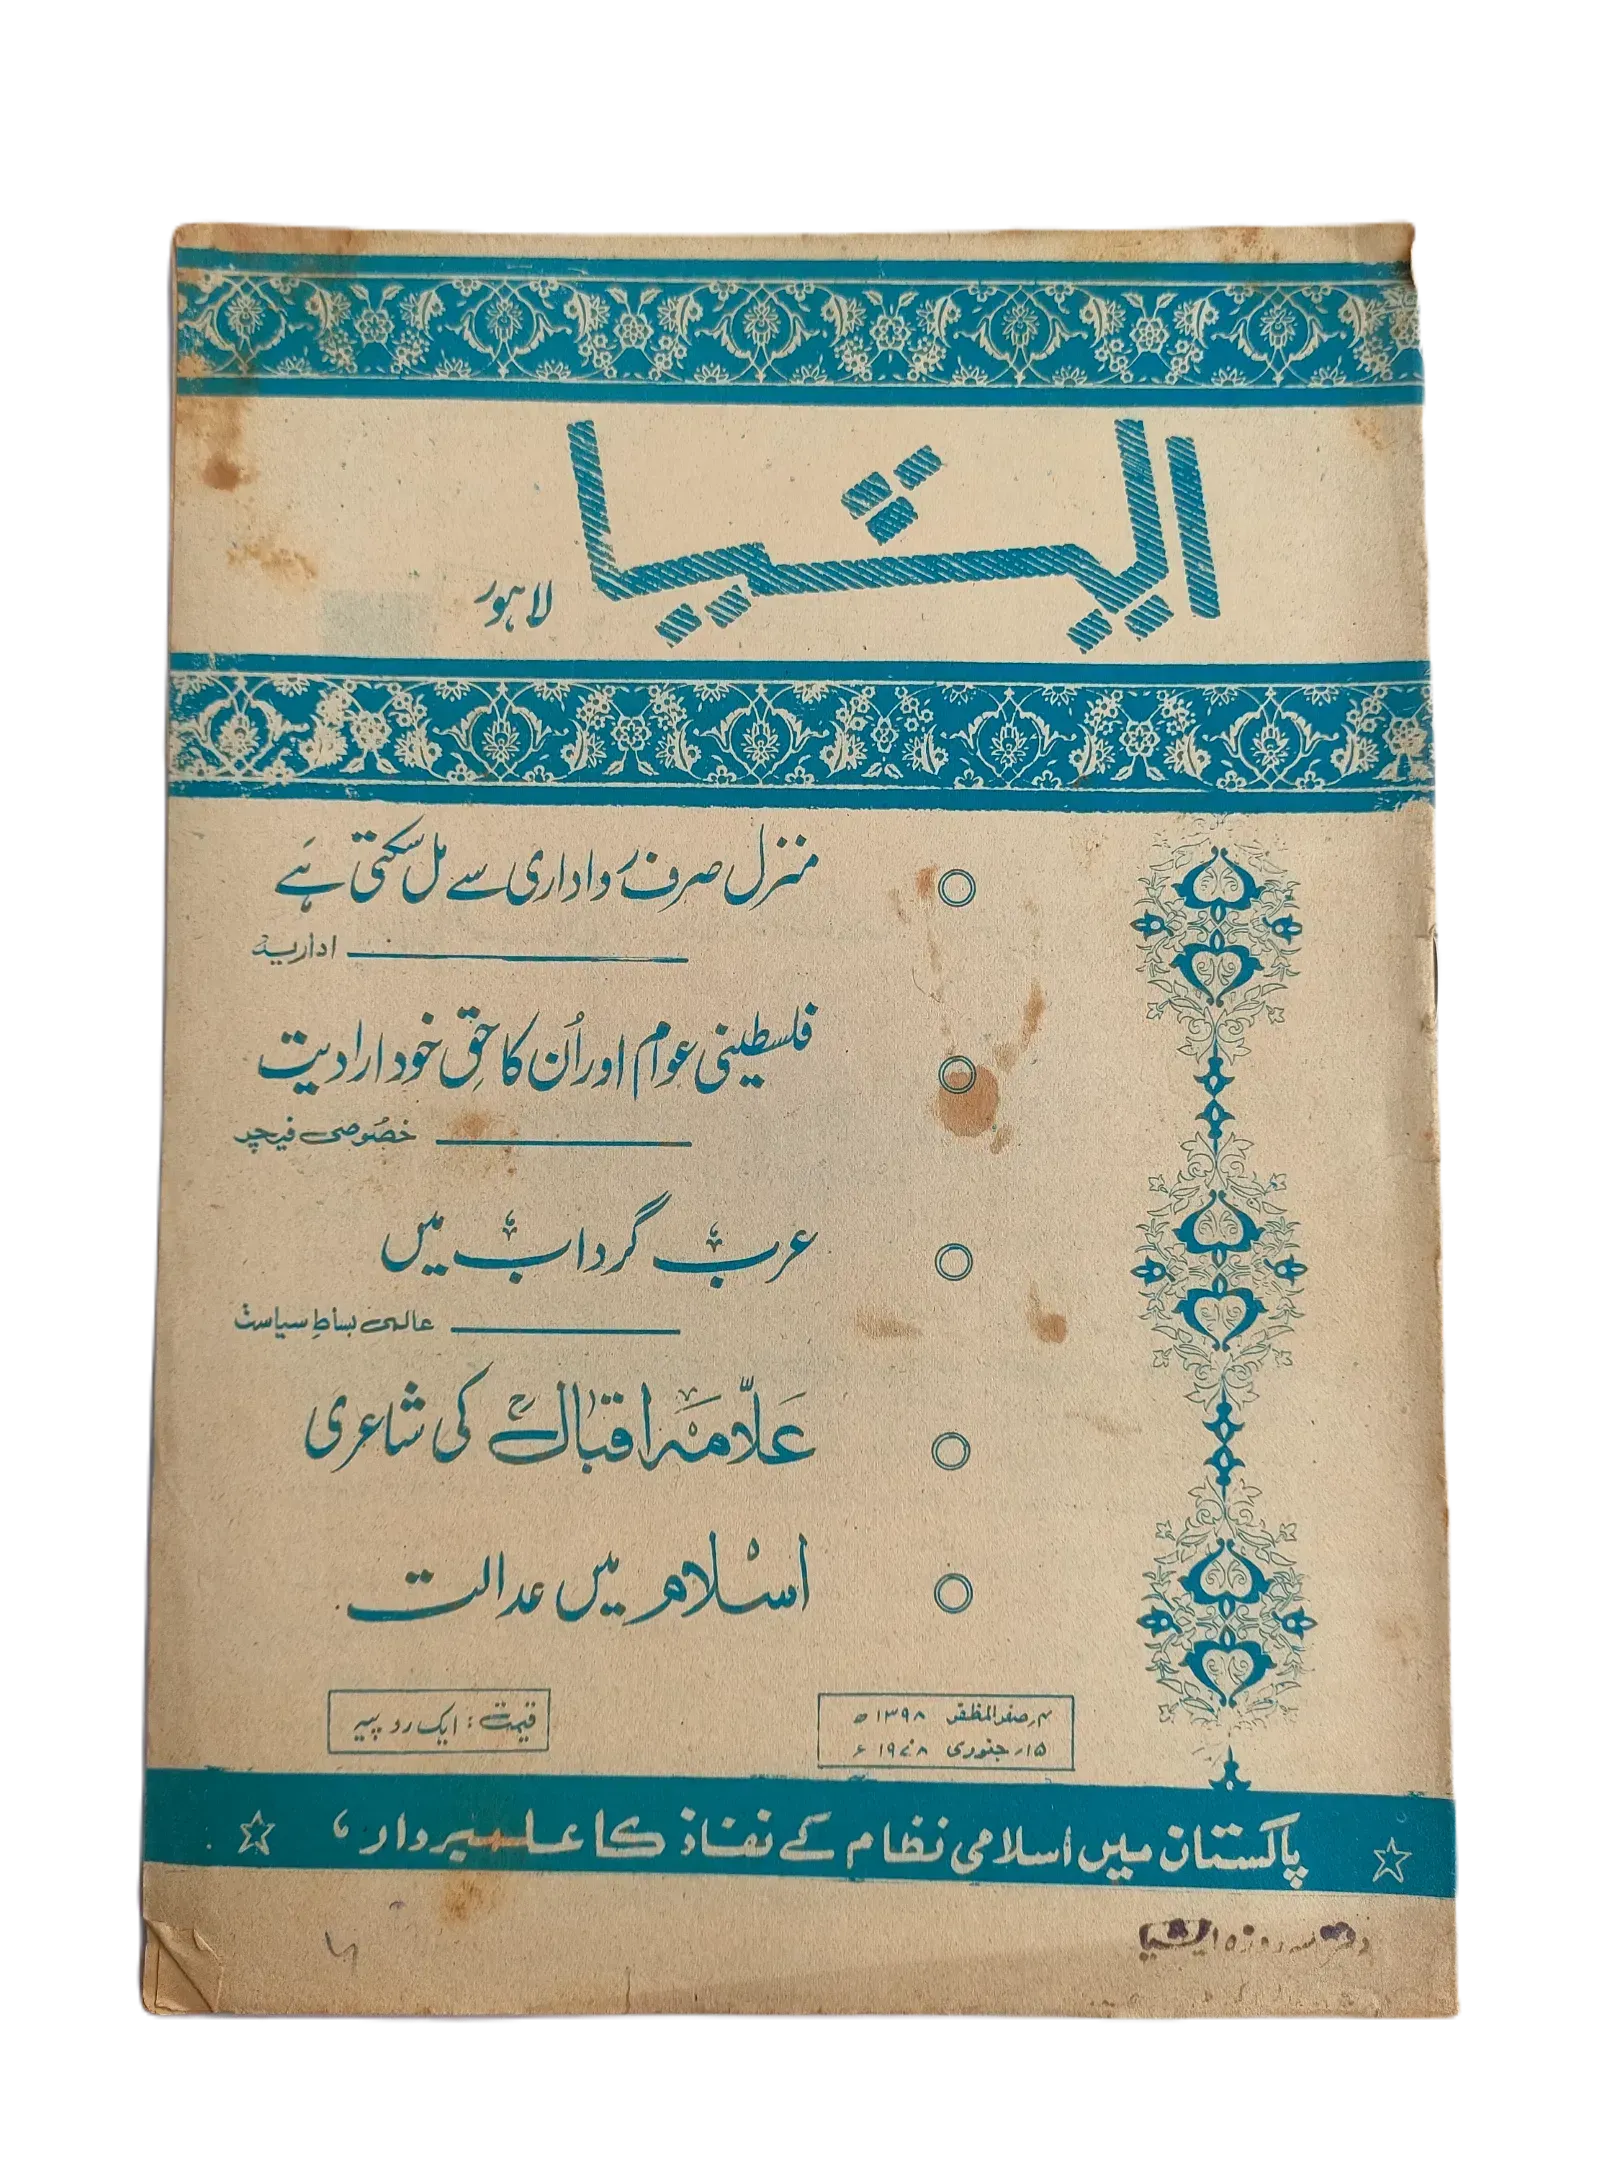 ایشیا
لاہور
منزل صرف رواداری سے مل سکتی ہے
اداریہ
فلسطینی عوام اور اُن کا حقِ خود ارادیت
خصُوصی فیچر
عرب گرداب میں
عالمی بساطِ سیاست
علّامہ اقبالؒ کی شاعری
اسْلام میں عدالت
قیمت : ایک روپیہ
صفر المظفر ۱۳۹۸ھ
۱۵ر جنوری ۱۹۷۸ء
پاکستان میں اسلامی نظام کے نفاذ کا علمبردار
دفتر سہ روزہ ایشیا